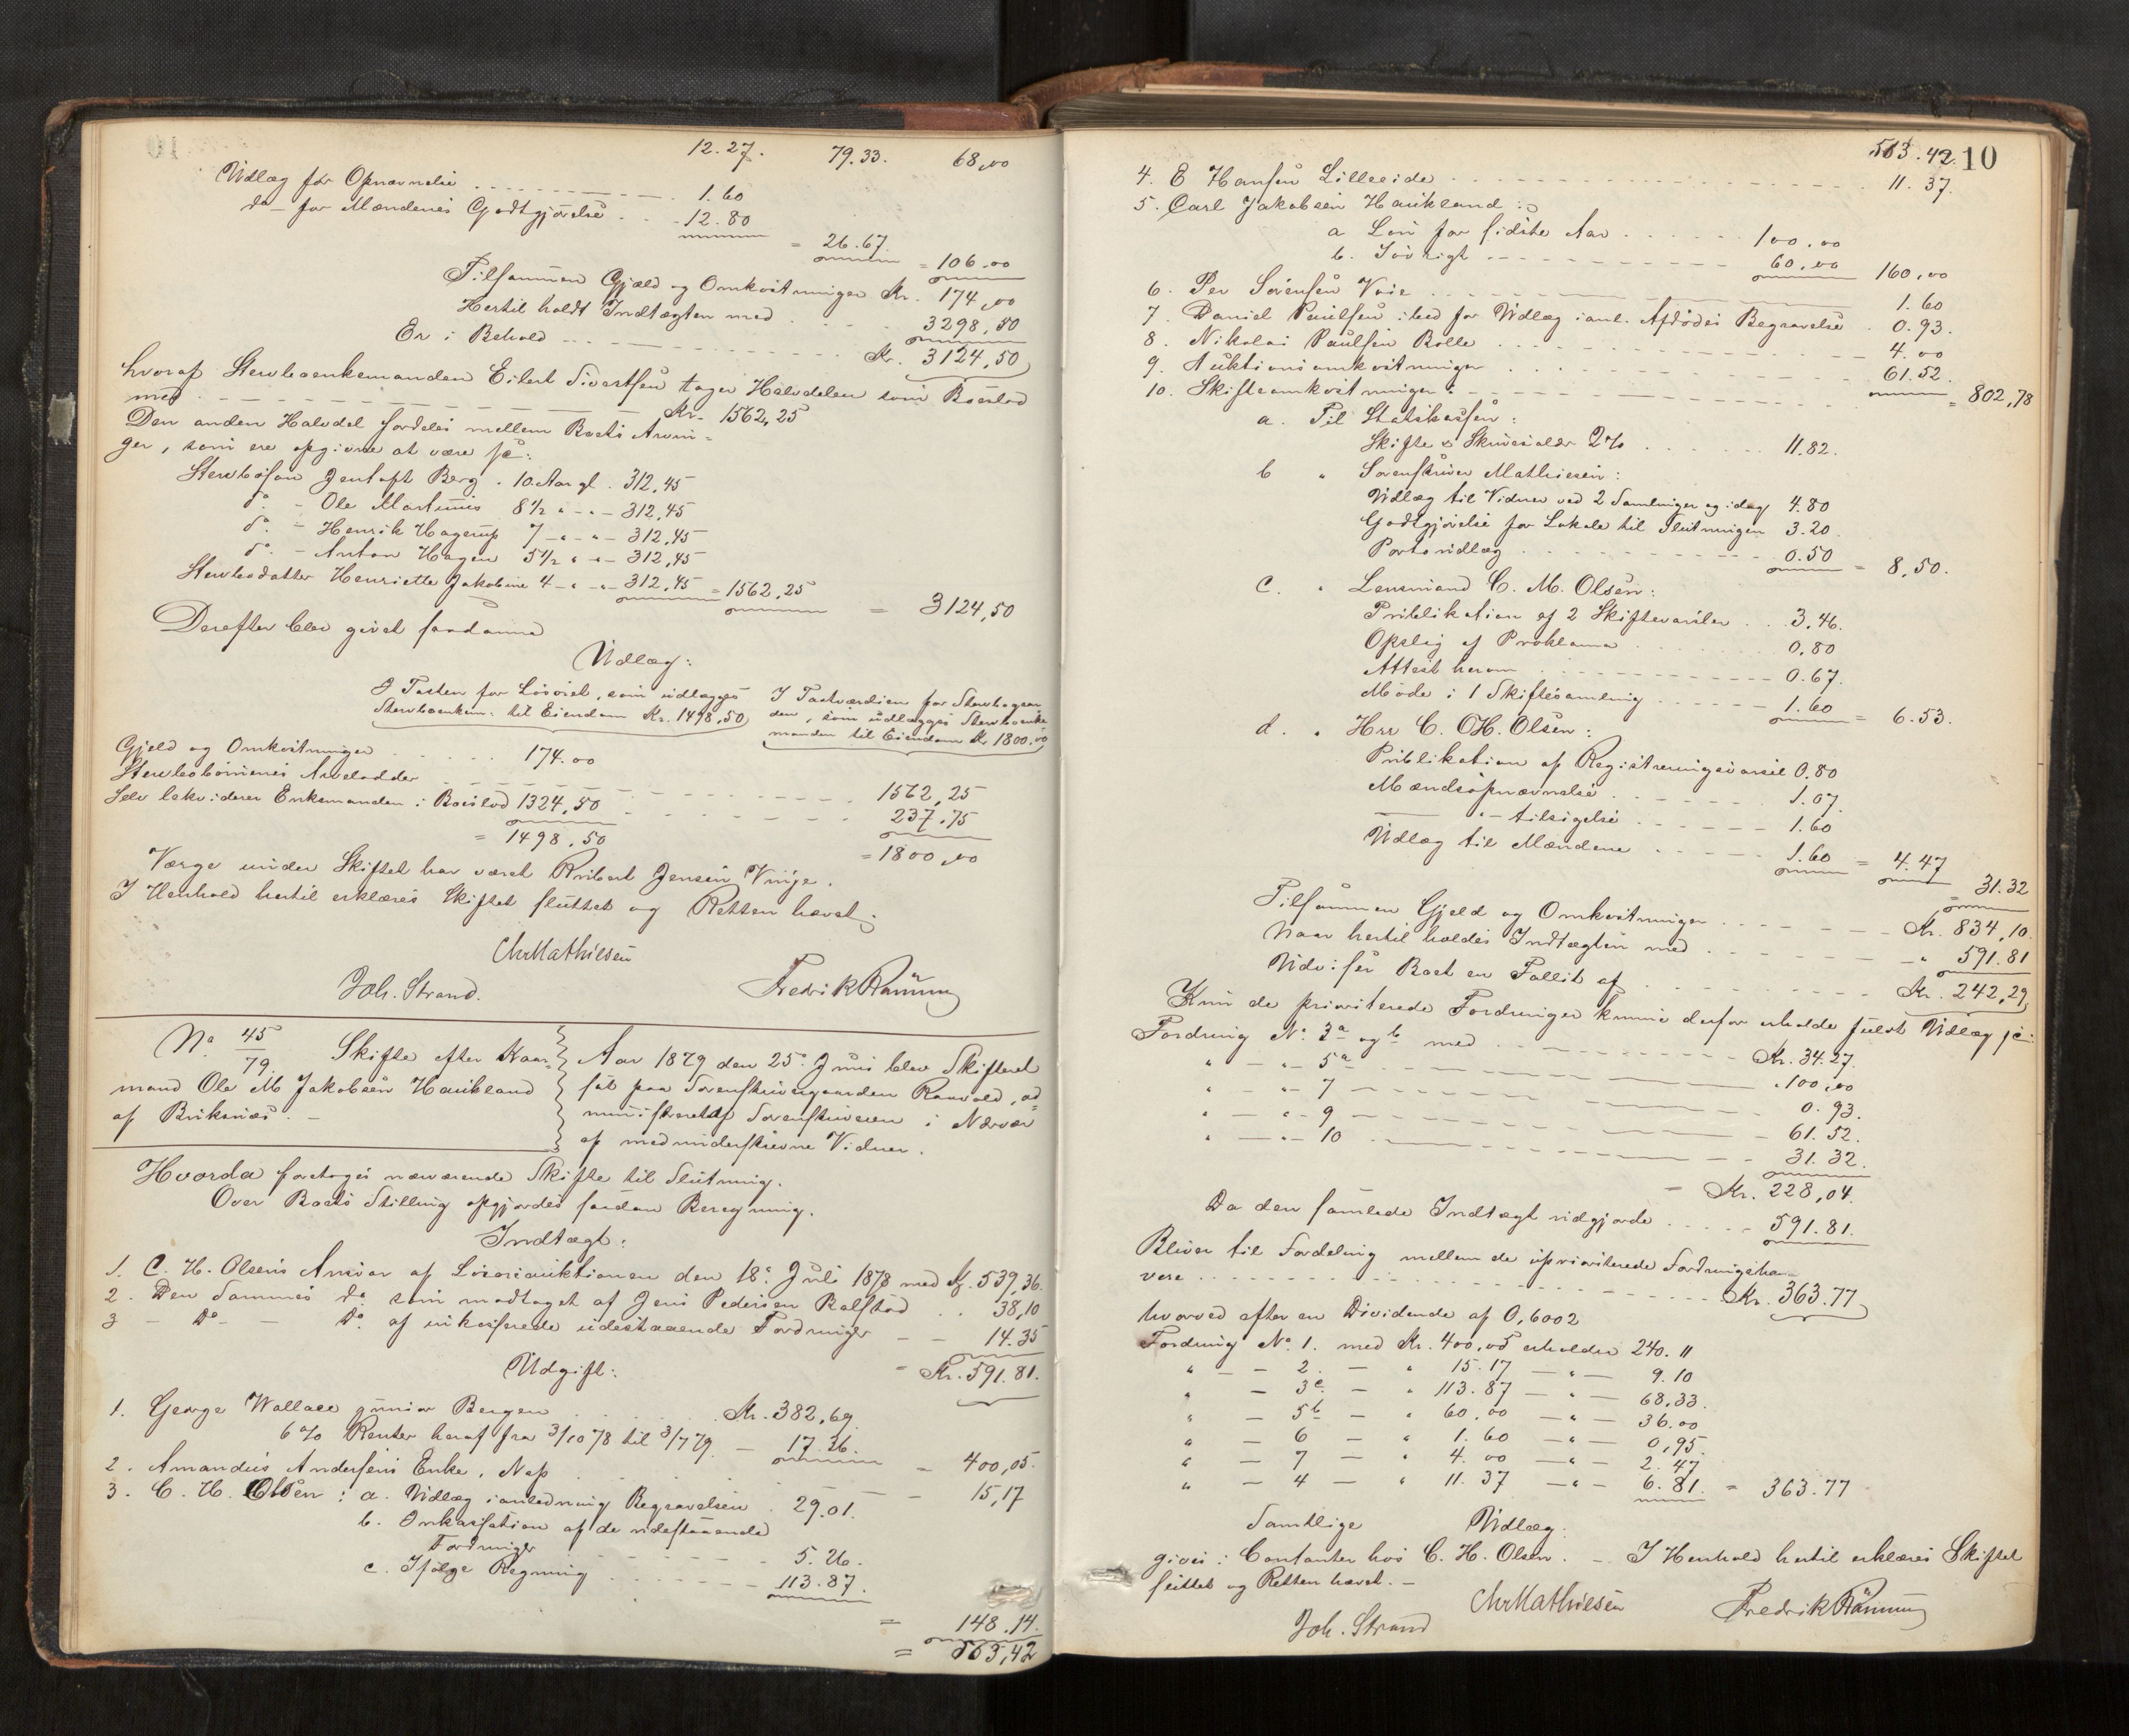 12.27. 79.33. 68,00
Udlæg for Opnævnelse 1.60
do – for Mændenes Godtgjörelse 12.80
= 26.67. = 106.00
Tilsammen Gjæld og Omkostninger Kr. 174,00
Hertil holdt Indtægten med 3298,50
Er i Behold Kr. 3124,50
hvoraf Stervboenkemanden Eilert Sivertsen tager Halvdelen som Boeslod
med Kr. 1562,25
Den anden Halvdel fordeles mellem Boets Arvin-
ger, som ere opgivne at være f.:
Stervbosön Jentoft Berg. 10 Aar gl. 312,45
do. – Ole Martinus 8 1/2 " – " – 312,45
do. – Henrik Hagerup 7 – " – " – 312,45
do. – Anton Hagen 5 1/2 " – " – 312,45
Stervbodatter Henriette Jakobine 4 – " – " – 312,45 = 1562,25
= 3124,50
Derefter blev givet saadanne
Udlæg:
I Taxten for Lösöret, som udlægges
Stervboenkem. til Eiendom Kr. 1498,50
I Taxtværdien for Stervbogaar
den, som udlægges Stervboenke
manden til Eiendom Kr. 1800,00
Gjeld og Omkostninger 174.00
Stervbobörnenes Arvelodder 1562,25
Selv lekviderer Enkemanden i Boeslod 1324,50 237.75
= 1498.50 = 1800,00
Værge under Skiftet har været Jensen Vinje.
I Henhold hertil erklæres Skiftet sluttet og Retten hævet.
Chr Mathiesen
Joh. Strand. Fredrik
No 45/79. Skifte efter Kaar-
mand Ole M Jakobsen Haukland
af Buksnæs. –
Aar 1879 den 25. Juni blev Skifteret
sat paa Sorenskrivergaarden Ramvold, ad-
ministreret af Sorenskriveren i Nærvær
af medunderskrevne Vidner.
Hvorda foretoges nærværende Skifte til Slutning.
Over Boets Stilling opgjordes saadan Beregning.
Indtægt:
1. C. H. Olsens Ansvar af Lösöreauktionen den 18. Juli 1878 med Kr. 539,36.
2. Den Sammes do som modtaget af Jens Pedersen Ralstad 38,10
3 – Do – Do. af inkasserede udestaaende Fordringer – – 14.35
= Kr. 591.81.
Udgift:
1. George Wallace junior Bergen Kr. 382,69
6 % Renter heraf fra 3/10 78 til 3/7 79. – 17.36.
= 400,05.
2. Amandus Andersens Enke, Nap 15,17
3. C. H. Olsen: a. Udlæg i anledning Begravelsen 29.01.
b. Inkassation af de udestaaende
Fordringer 5.26.
c. Ifölge Regning 113.87.
= 148.14.
= 563,42
563.42. 10
4. E Hansen Lilleeide 11.37.
5. Carl Jakobsen Haukland:
a Lön for sidste Aar 100.00
b. Iövrigt 60,00 160,00
6. Per Sörensen Voie 1.60
7. Daniel Paulsen ibid for Udlæg i anl. Afdödes Begravelse 0.93.
8. Nikolai Paulsen Bolle 4.00
9. Auktionsomkostninger 61.52.
= 802,78
10. Skifteomkostninger:
a. Til Statskassen:
Skifte & Skriversalær 2% 11.82.
b " Sorenskriver Mathiesen:
Udlæg til Vidner ved 2 Samlinger og idag 4.80
Godtgjörelse for Lokale til Slutningen 3.20
Portoudlæg 0.50 = 8,50.
c. " Lensmand C. M. Olsen:
Publikation af 2 Skiftevarsler 3,46.
Opslag af Proklama 0,80
Attest herom 0.67.
Möde i 1 Skiftesamling 1.60 = 6.53.
d. " Herr C. H. Olsen:
Publikation af Registreringsvarsel 0,80
Mændsopnævnelse 1.07
– " – tilsigelse 1.60
Udlæg til Mændene 1.60 = 4.47
= 31.32
Tilsammen Gjeld og Omkostninger Kr. 834,10.
Naar hertil holdes Indtægten med " 591.81
Udviser Boet en Fallit af Kr. 242,29
Kun de prioriterede Fordringer kunne derfor erholde fuldt Udlæg f.:
Fordring No. 3a og b med Kr. 34.27.
" – " – 5a " 100,00
" – " – 7 0.93.
" – " – 9 61.52.
" – " – 10 31.32.
= Kr. 228,04.
Da den samlede Indtægt udgjorde 591.81.
Bliver til Fordeling mellem de upriviterede Fordringsha-
vere Kr. 363.77
hvorved efter en Dividende af 0,6002
Fordring No. 1. med Kr. 400,05 erholder 240.11
" – 2. – " 15.17 – " – 9.10
" – 3c. – " 113.87 – " – 68,33.
" – 5b – " 60,00 – " – 36.00
" – 6 – " 1.60 – " – 0,95.
" – 7 – " 4.00 – " – 2.47
" – 4 – " 11.37 – " – 6.81. = 363.77
Samtlige Udlæg:
gives i Contanter hos C. H. Olsen. – I Henhold hertil erklæres Skiftet
sluttet og Retten hævet. –
Chr Mathiesen Fredrik
Joh. Strand